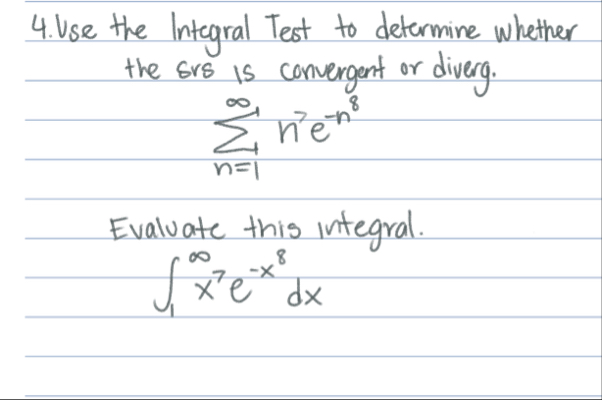 4. Use the Integral Test to determine whether
the srs is convergent or diverg.
∞
Σ n⁷e^{-n⁸}
n=1
Evaluate this integral.
∫₁^∞ x⁷e^{-x⁸} dx